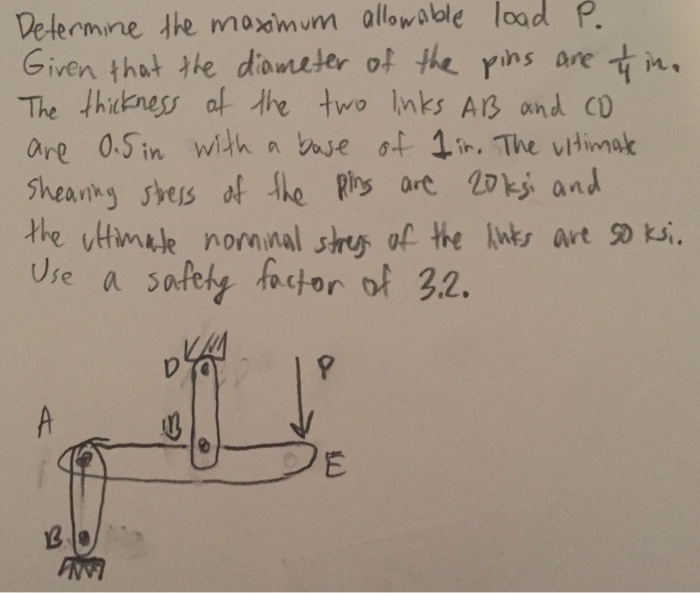 Determine the maximum allowable load P.
Given that the diameter of the pins are 1/4 in.
The thickness of the two links AB and CD
are 0.5 in with a base of 1 in. The ultimate
shearing stress of the pins are 20 ksi and
the ultimate nominal stress of the links are 50 ksi.
Use a safety factor of 3.2.
D P
A
E
B